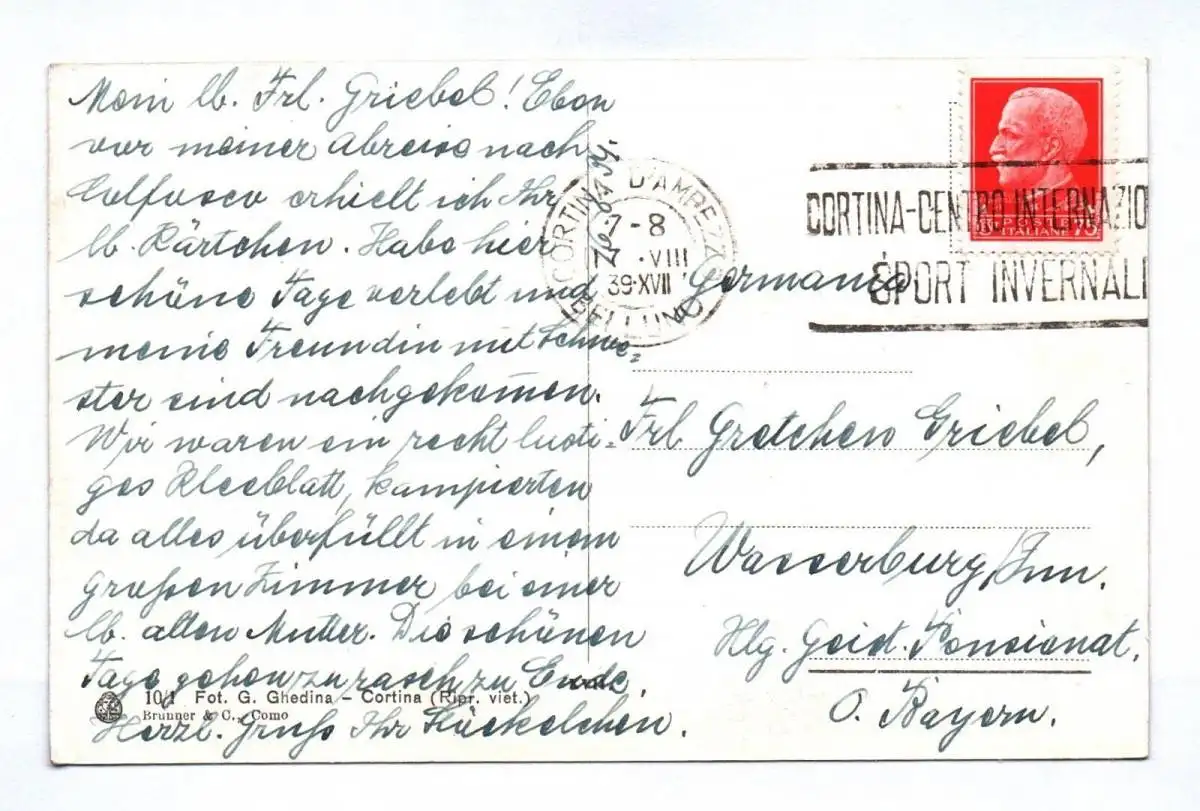 Mein lb. Frl. Griebel! Eben
vor meiner Abreise nach
Colfosco erhielt ich Ihr
lb. Kärtchen. Habe hier
schöne Tage verlebt und
meine Freundin mit Schwe=
ster sind nachgekom̄en.
Wir waren ein recht lusti=
ges Kleeblatt, kampierten
da alles überfüllt in einem
großen Zimmer bei einer
lb. alten Mutter. Die schönen
Tage gehen zu rasch zu Ende.
Herzl. Gruß Ihr
10/1 Fot. G. Ghedina – Cortina (Ripr. viet.)
Brunner & C., Como
CORTINA D'AMPEZZO
7-8
7.VIII
39·XVII
BELLUNO
POSTE
ITALIANE 75
CORTINA-CENTRO INTERNAZIO
SPORT INVERNALI
Germania.
Frl Gretchen Griebel,
Wasserburg/Inn.
Hlg. Geist. Pensionat.
O. Bayern.